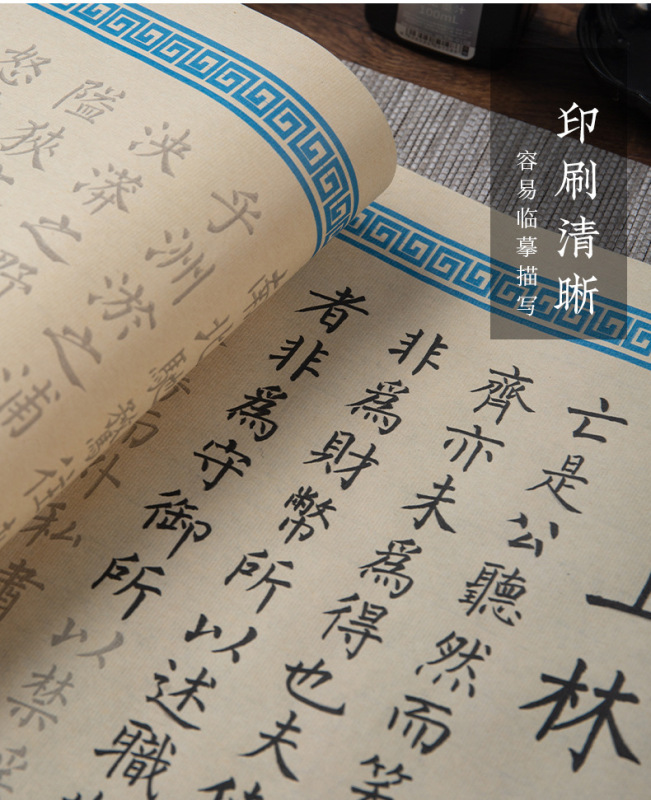 印刷清晰
容易临摹描写
上林
亡是公聽然而
齊亦未爲得也夫使
非爲財幣所以述職
者非爲守御所以禁淫
而外私肅
乎洲淤之浦
泱漭之野
隘狹之
怒